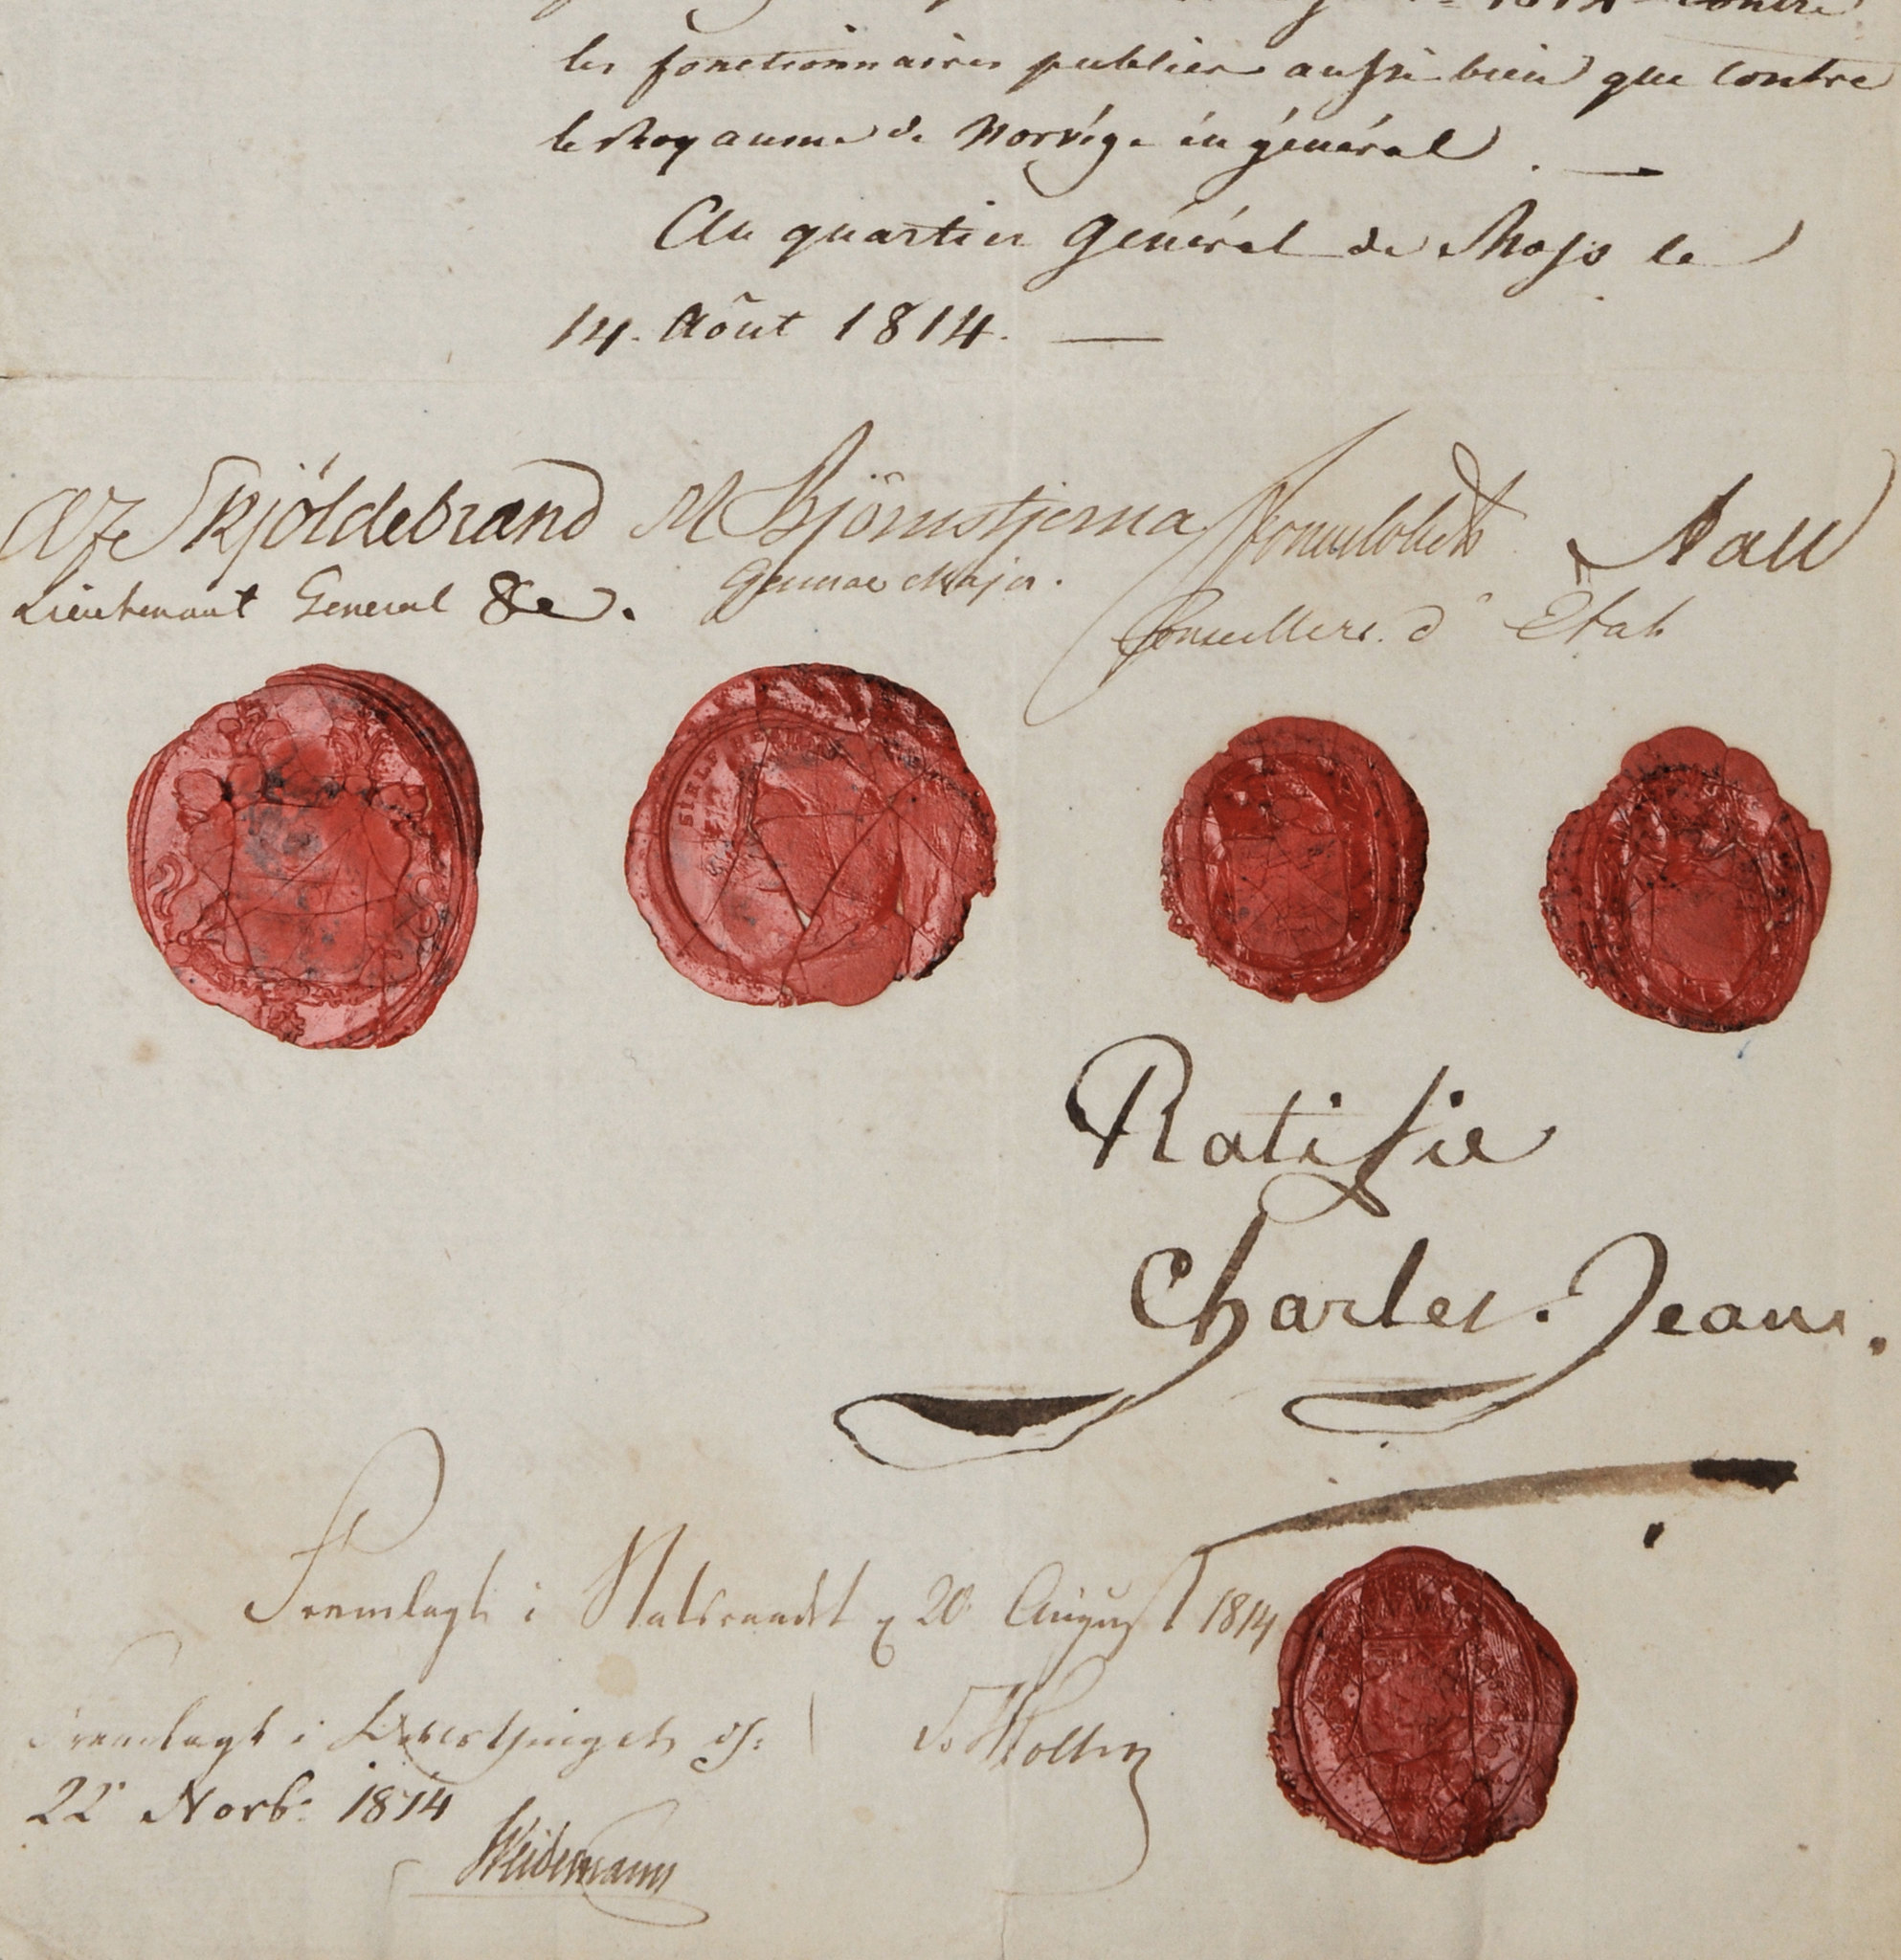 1814 contre
les fonctionnaires publics aussi bien que contre
le Royaume de Norvége én général. —
Au quartier Général de Moss le
14. Aôut 1814. —
Af Skjöldebrand M Björnstjerna Aall
Lieutenant General &c. General Major. Conseillers d'Etat
SIELF
Ratifie
Charles. Jean.
Fremlagt i Statsraadet d 20 August 1814
Fremlagt i
22 Novbr 1814
Weidemann